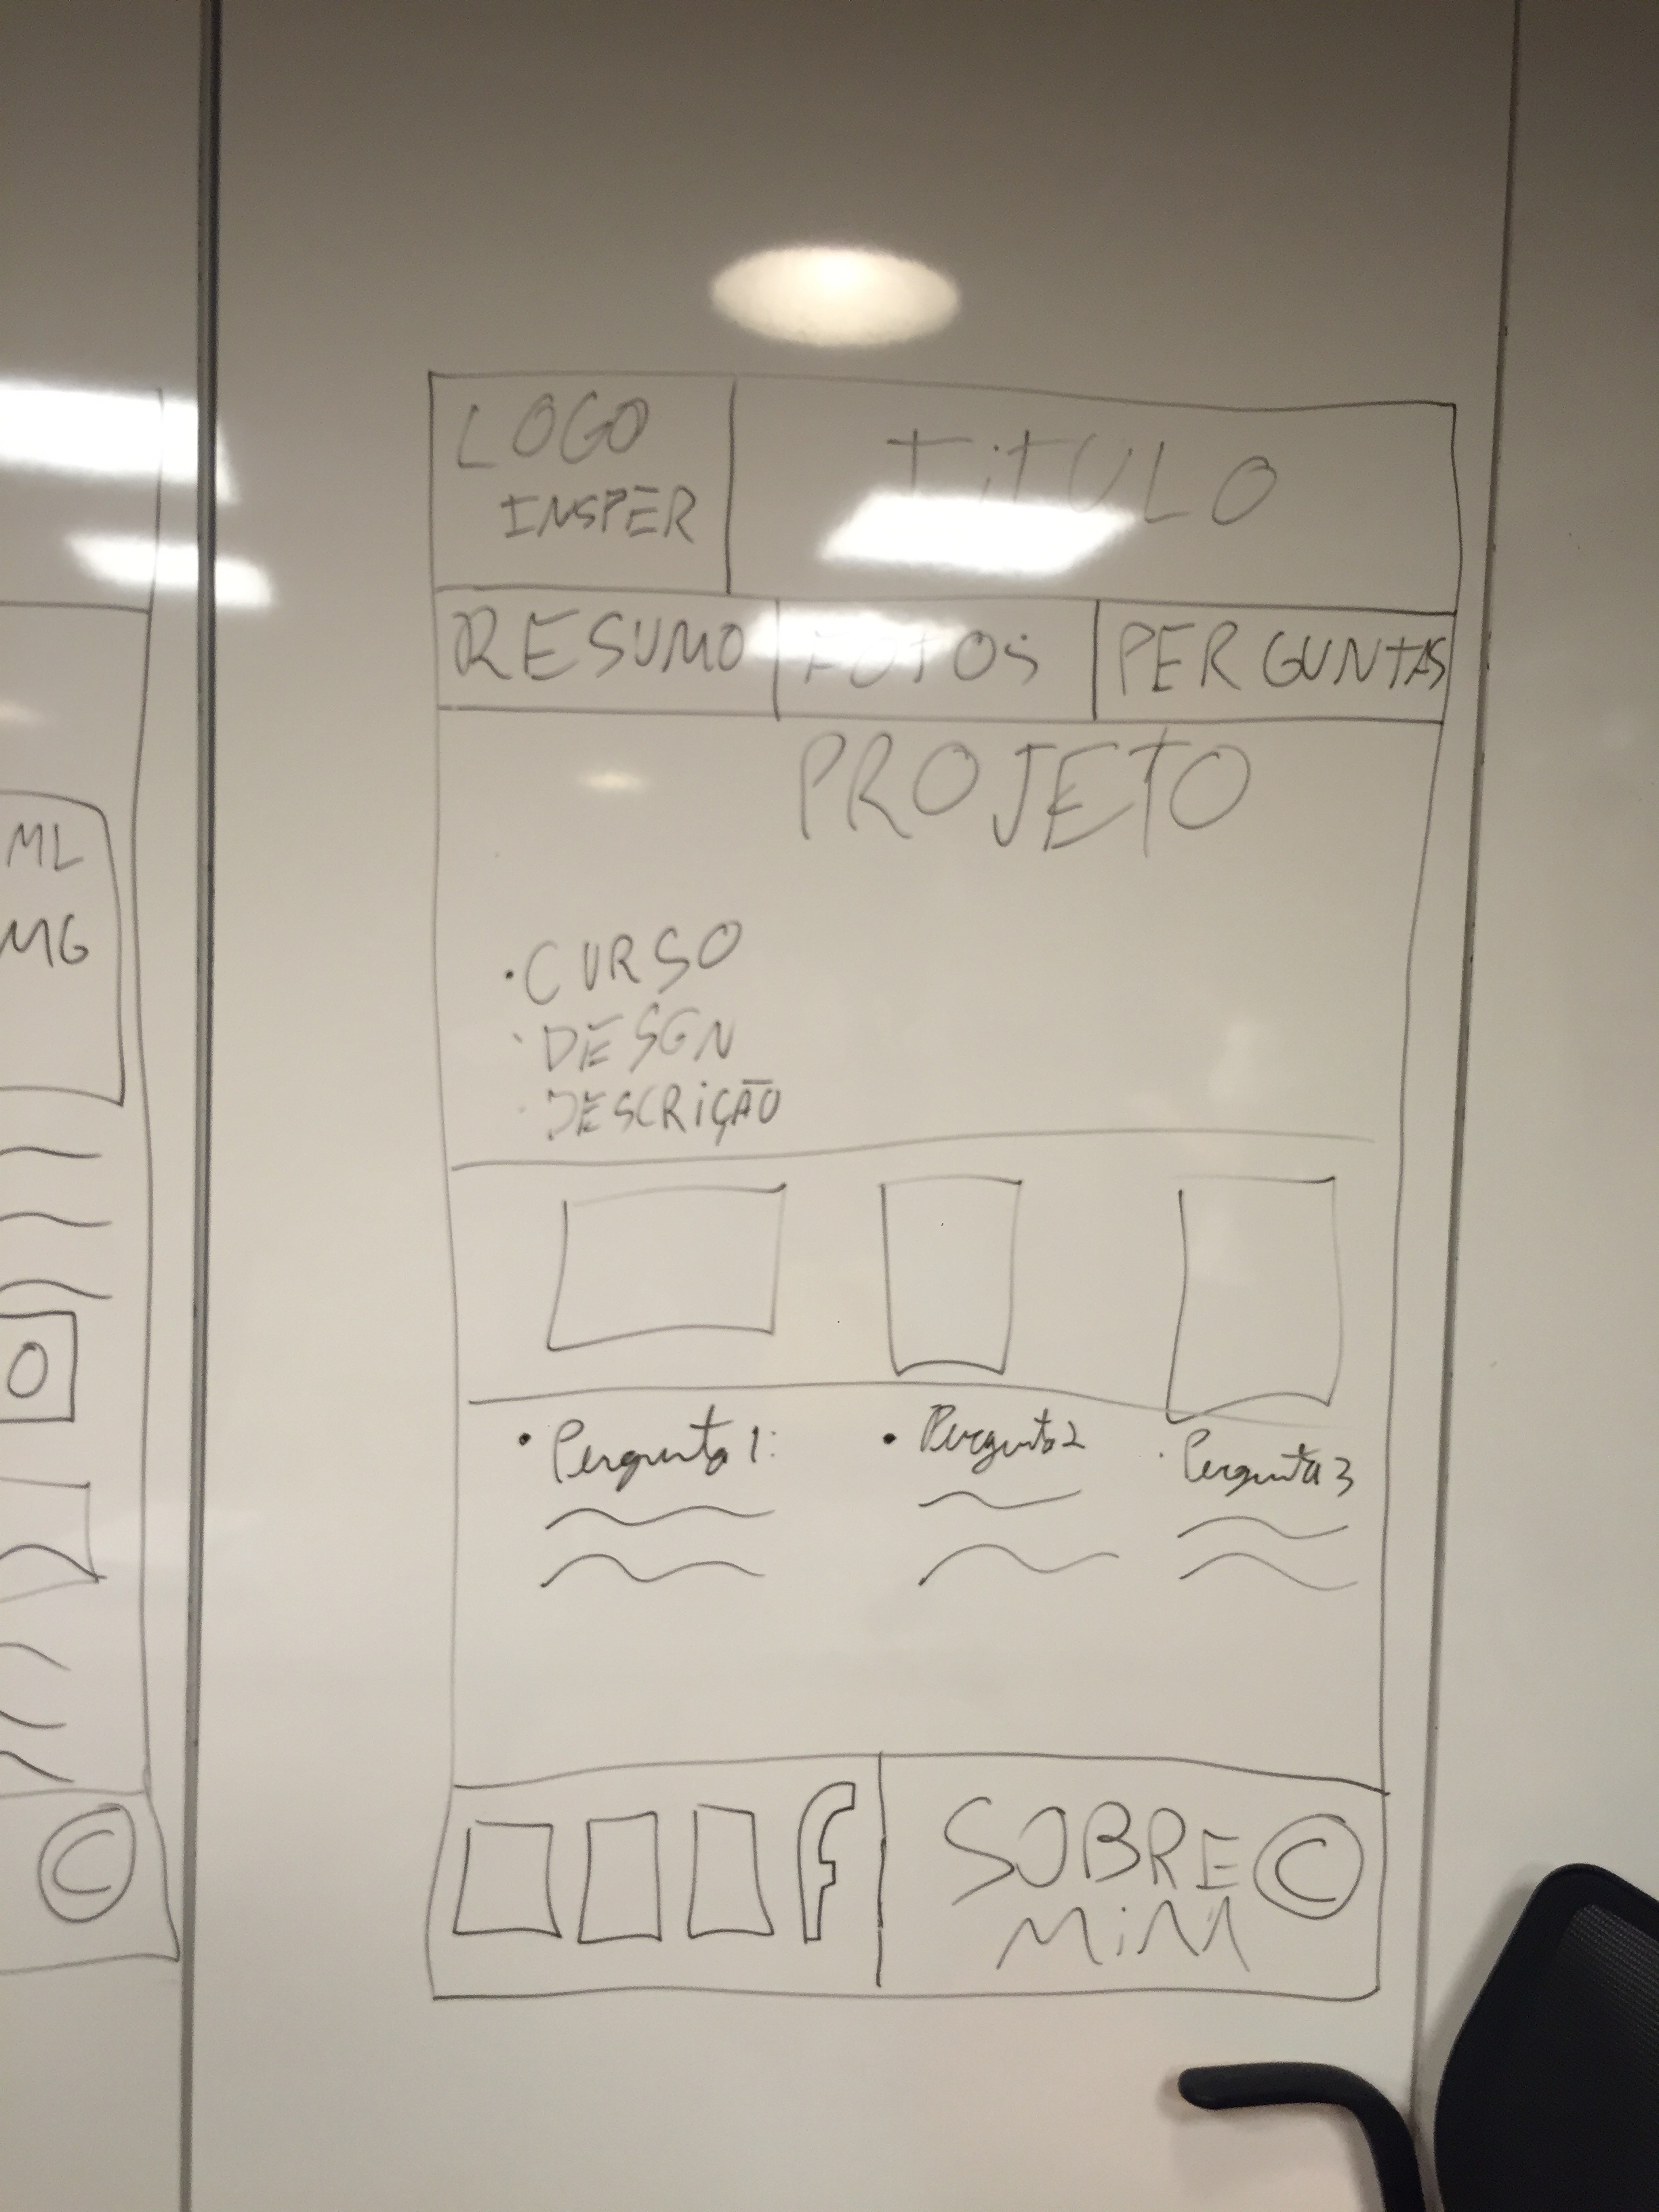 LOGO
INSPER
TiTULO
RESUMO
FOTOS
PERGUNTAS
PROJETO
• CURSO
• DESGN
• DESCRiÇÃO
• Pergunta 1:
• Pergunta 2
• Pergunta 3
f
SOBRE
MiM
©
ML
MG
O
©